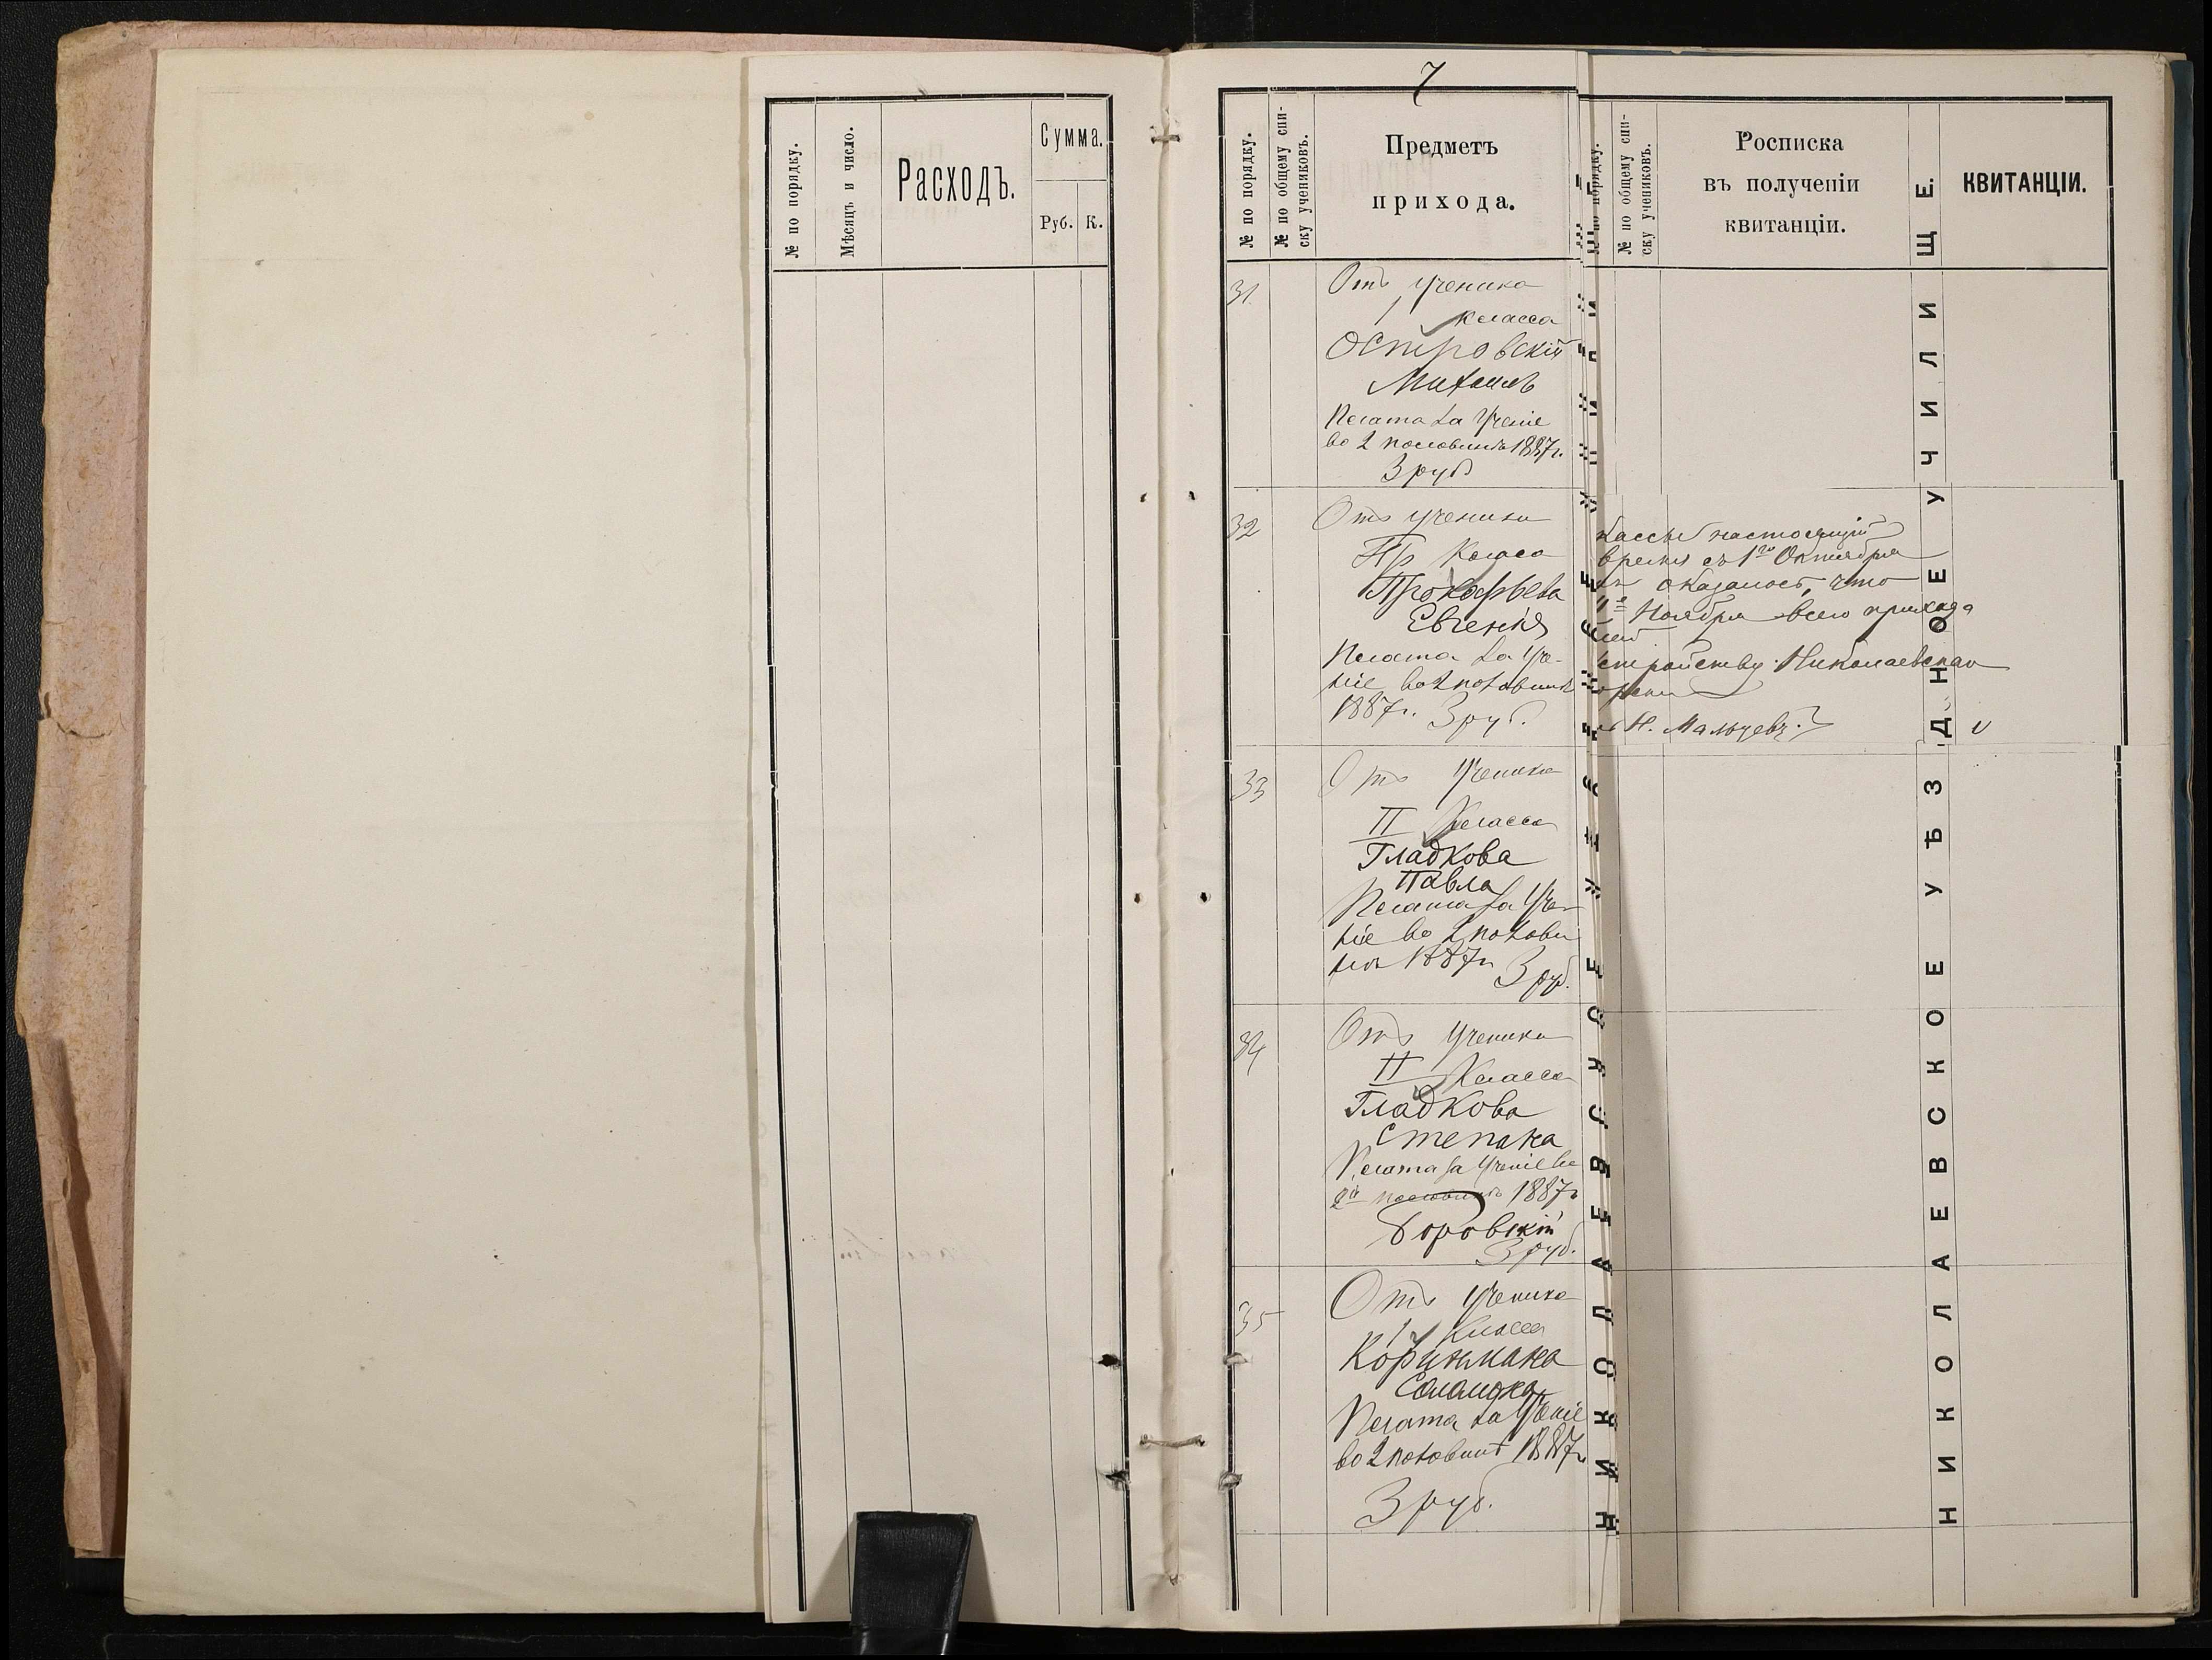 № по порядку.
Мѣсяцъ и число.
Расходъ.
Сумма.
Руб.
К.
7
№ по порядку.
№ по общему спи-
ску учениковъ.
Предметъ
прихода.
31
Отъ ученика
1 класса
Островскій
Михаилъ
Плата за ученіе
во 2 половинѣ 1887 г.
3 руб
32
Отъ ученика
Пр класса
Прокофьева
Евгенія
Плата за уче-
ніе во 2 половинѣ
1887 г. 3 руб.
33
Отъ ученика
II класса
Гладкова
Павла
Плата за уче-
ніе во 2 полови
нѣ 1887 г
3 руб.
34
Отъ ученика
II класса
Гладкова
Степана
Плата за ученіе во
2й половинѣ 1887 г
Боровскій
3 руб.
35
Отъ ученика
1 класса
Плата за ученіе
во 2 половинѣ 1887 г
3 руб.
№ по порядку.
№ по общему спи-
ску учениковъ.
Росписка
въ полученіи
квитанціи.
КВИТАНЦІИ.
кассы настоящій
время съ 1го Октября
оказалось, что
Ноября всего прихода
Николаевскаго
Н. Мальцевъ.
НИКОЛАЕВСКОЕ УѢЗДНОЕ УЧИЛИЩЕ.